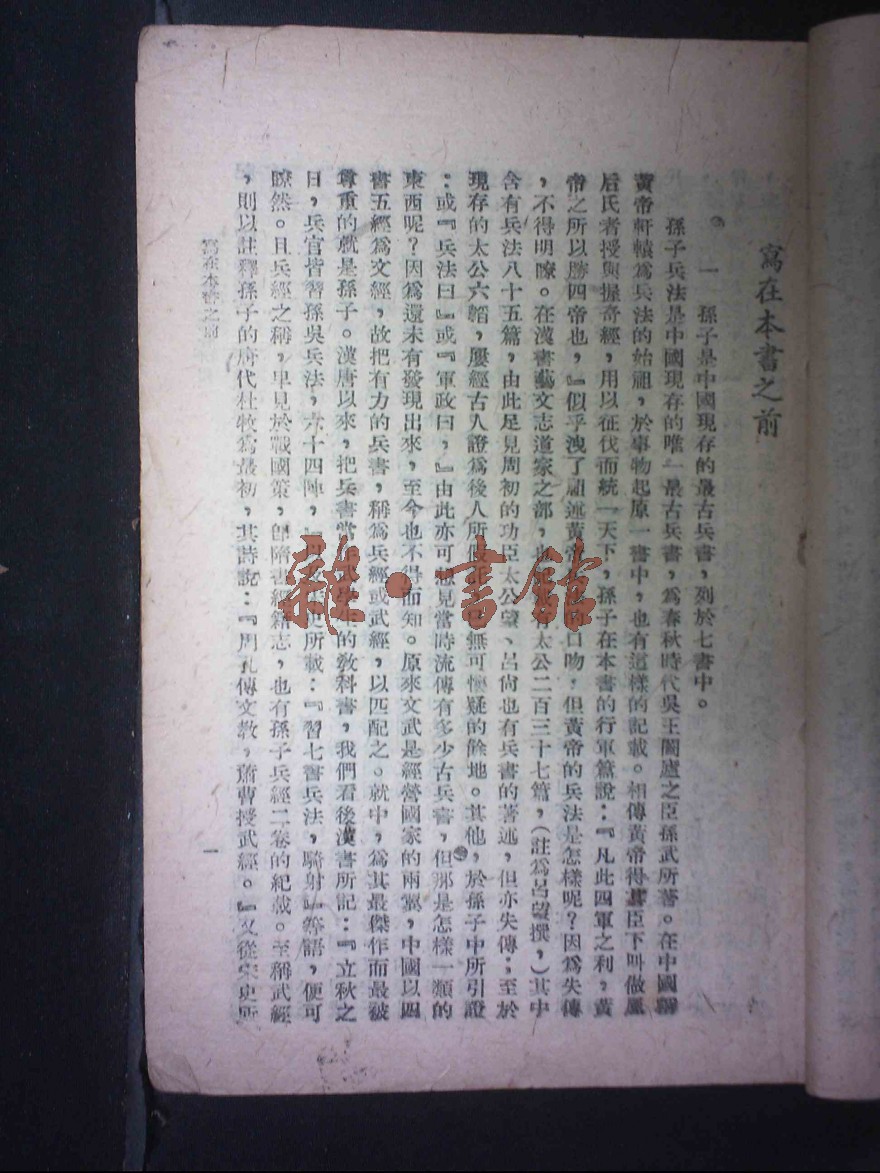 寫在本書之前
一 孫子是中國現存的最古兵書，列於七書中。
孫子兵法是中國現存的唯一最古兵書，為春秋時代吳王闔廬之臣孫武所著。在中國
黃帝軒轅為兵法的始祖，於事物起原一書中，也有這樣的記載。相傳黃帝得其臣下叫做風
后氏者授與握奇經，用以征伐而統一天下，孫子在本書的行軍篇說：『凡此四軍之利，黃
帝之所以勝四帝也，』似乎洩了祖述黃帝的口吻，但黃帝的兵法是怎樣呢？因為失傳
，不得明瞭。在漢書藝文志道家之部，也太公二百三十七篇，（註為呂望撰，）其中
含有兵法八十五篇，由此足見周初的功臣太公望、呂尙也有兵書的著述，但亦失傳；至於
現存的太公六韜，屢經古人證為後人所無可懷疑的餘地。其他，於孫子中所引證
：或『兵法曰』或『軍政曰，』由此亦可想見當時流傳有多少古兵書，但那是怎樣一類的
東西呢？因為還未有發現出來，至今也不得而知。原來文武是經營國家的兩翼，中國以四
書五經為文經，故把有力的兵書，稱為兵經或武經，以匹配之。就中，為其最傑作而最被
尊重的就是孫子。漢唐以來，把兵書當作武學生的敎科書，我們看後漢書所記：『立秋之
日，兵官皆習孫吳兵法，六十四陣，』史所載：『習七書兵法，騎射』等語，便可
瞭然。且兵經之稱，早見於戰國策，卽隋書經籍志，也有孫子兵經二卷的紀載。至稱武經
，則以註釋孫子的唐代杜牧為最初，其詩說：『周孔傳文敎，蕭曹授武經。』又從宋史所
寫在本書之前
一
雜・書館